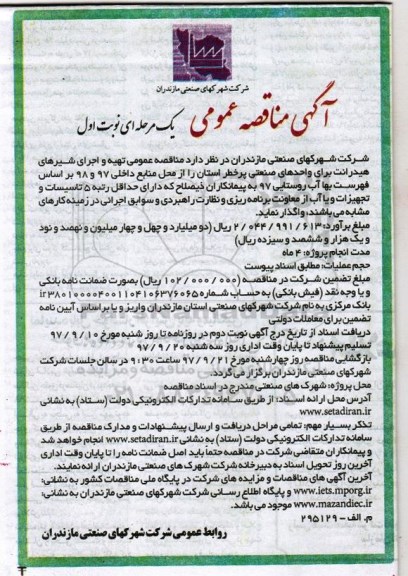 شرکت شهرکهای صنعتی مازندران
آگهی مناقصه عمومی یک مرحله ای نوبت اول
شرکت شهرکهای صنعتی مازندران در نظر دارد مناقصه عمومی تهیه و اجرای شیرهای
هیدرانت برای واحدهای صنعتی پرخطر استان را از محل منابع داخلی ۹۷ و ۹۸ بر اساس
فهرست بها آب روستایی ۹۷ به پیمانکاران ذیصلاح که دارای حداقل رتبه ۵ تاسیسات و
تجهیزات و یا آب از معاونت برنامه ریزی و نظارت راهبردی و سوابق اجرائی در زمینه کارهای
مشابه می باشند، واگذار نماید.
مبلغ برآورد: ۲/۰۴۴/۹۹۱/۶۱۳ ریال (دو میلیارد و چهل و چهار میلیون و نهصد و نود
و یک هزار و ششصد و سیزده ریال)
مدت انجام پروژه: ۴ ماه
حجم عملیات: مطابق اسناد پیوست
مبلغ تضمین شرکت در مناقصه (۱۰۲/۰۰۰/۰۰۰ ریال) بصورت ضمانت نامه بانکی
و یا وجه نقد (فیش بانکی) به حساب شماره ir۳۸۰۱۰۰۰۰۴۰۰۱۱۰۴۱۰۶۳۷۶۰۶۵
بانک مرکزی به نام شرکت شهرکهای صنعتی استان مازندران واریز و یا بر اساس آیین نامه
تضمین برای معاملات دولتی
دریافت اسناد از تاریخ درج آگهی نوبت دوم در روزنامه تا روز شنبه مورخ ۹۷/۹/۱۰
تسلیم پیشنهاد تا پایان وقت اداری روز سه شنبه ۹۷/۹/۲۰
بازگشایی مناقصه روز چهارشنبه مورخ ۹۷/۹/۲۱ ساعت ۹:۳۰ در سالن جلسات شرکت
شهرکهای صنعتی مازندران برگزار می گردد.
محل پروژه: شهرک های صنعتی مندرج در اسناد مناقصه
آدرس محل ارائه اسناد: از طریق سامانه تدارکات الکترونیکی دولت (ستاد) به نشانی
www.setadiran.ir
تذکر بسیار مهم: تمامی مراحل دریافت و ارسال پیشنهادات و مدارک مناقصه از طریق
سامانه تدارکات الکترونیکی دولت (ستاد) به نشانی www.setadiran.ir انجام خواهد شد
و پیمانکاران متقاضی شرکت در مناقصه حتما باید اصل ضمانت نامه را تا پایان وقت اداری
آخرین روز تحویل اسناد به دبیرخانه شرکت شهرک های صنعتی مازندران ارائه نمایند.
آخرین آگهی های مناقصات و مزایده های شرکت در پایگاه ملی مناقصات کشور به نشانی:
www.iets.mporg.ir و پایگاه اطلاع رسانی شرکت شهرکهای صنعتی مازندران به نشانی:
www.mazandiec.ir موجود می باشد.
م. الف - ۲۹۵۱۲۹
روابط عمومی شرکت شهرکهای صنعتی مازندران